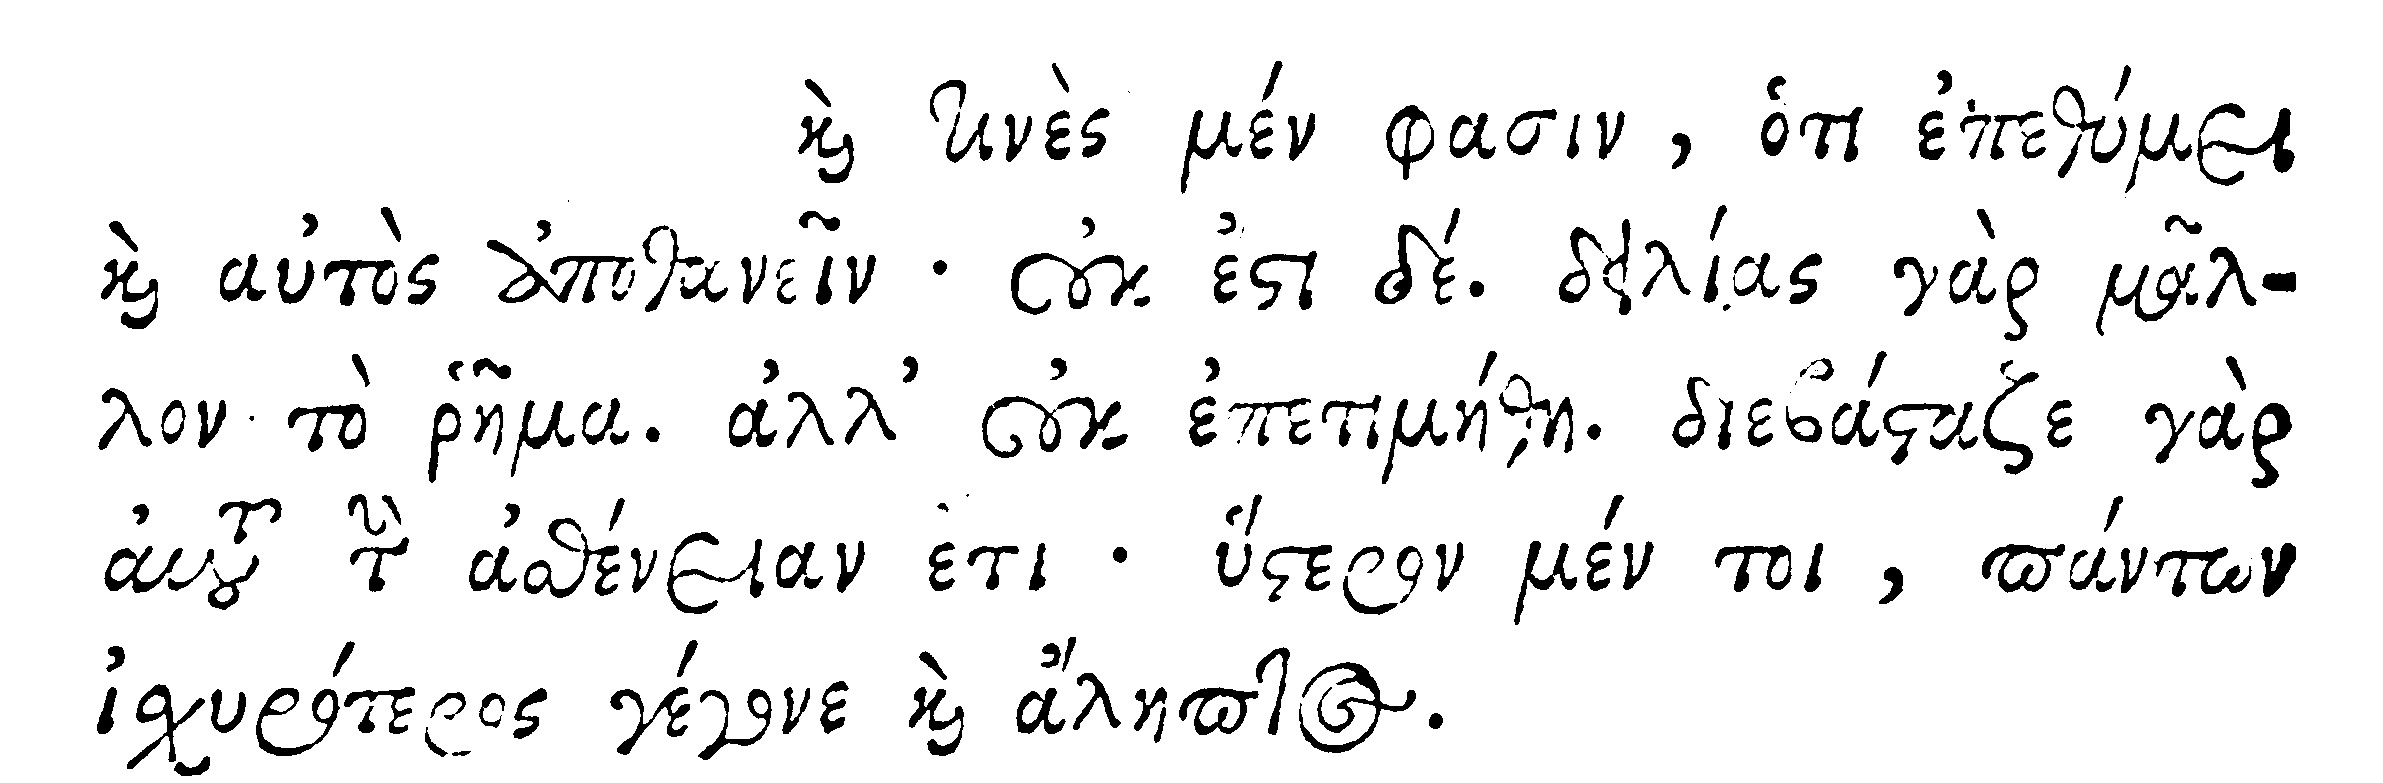 καὶ τινὲς μέν φασιν, ὅτι ἐπεθύμει
καὶ αὐτὸς ἀποθανεῖν· οὐκ ἔστι δέ. δειλίας γὰρ μᾶλ-
λον τὸ ῥῆμα. ἀλλ' οὐκ ἐπετιμήθη. διεβάσταζε γὰρ
αὐτοῦ τὴν ἀσθένειαν ἔτι· ὕστερον μέν τοι, πάντων
ἰσχυρότερος γέγονε καὶ ἄληπτος.